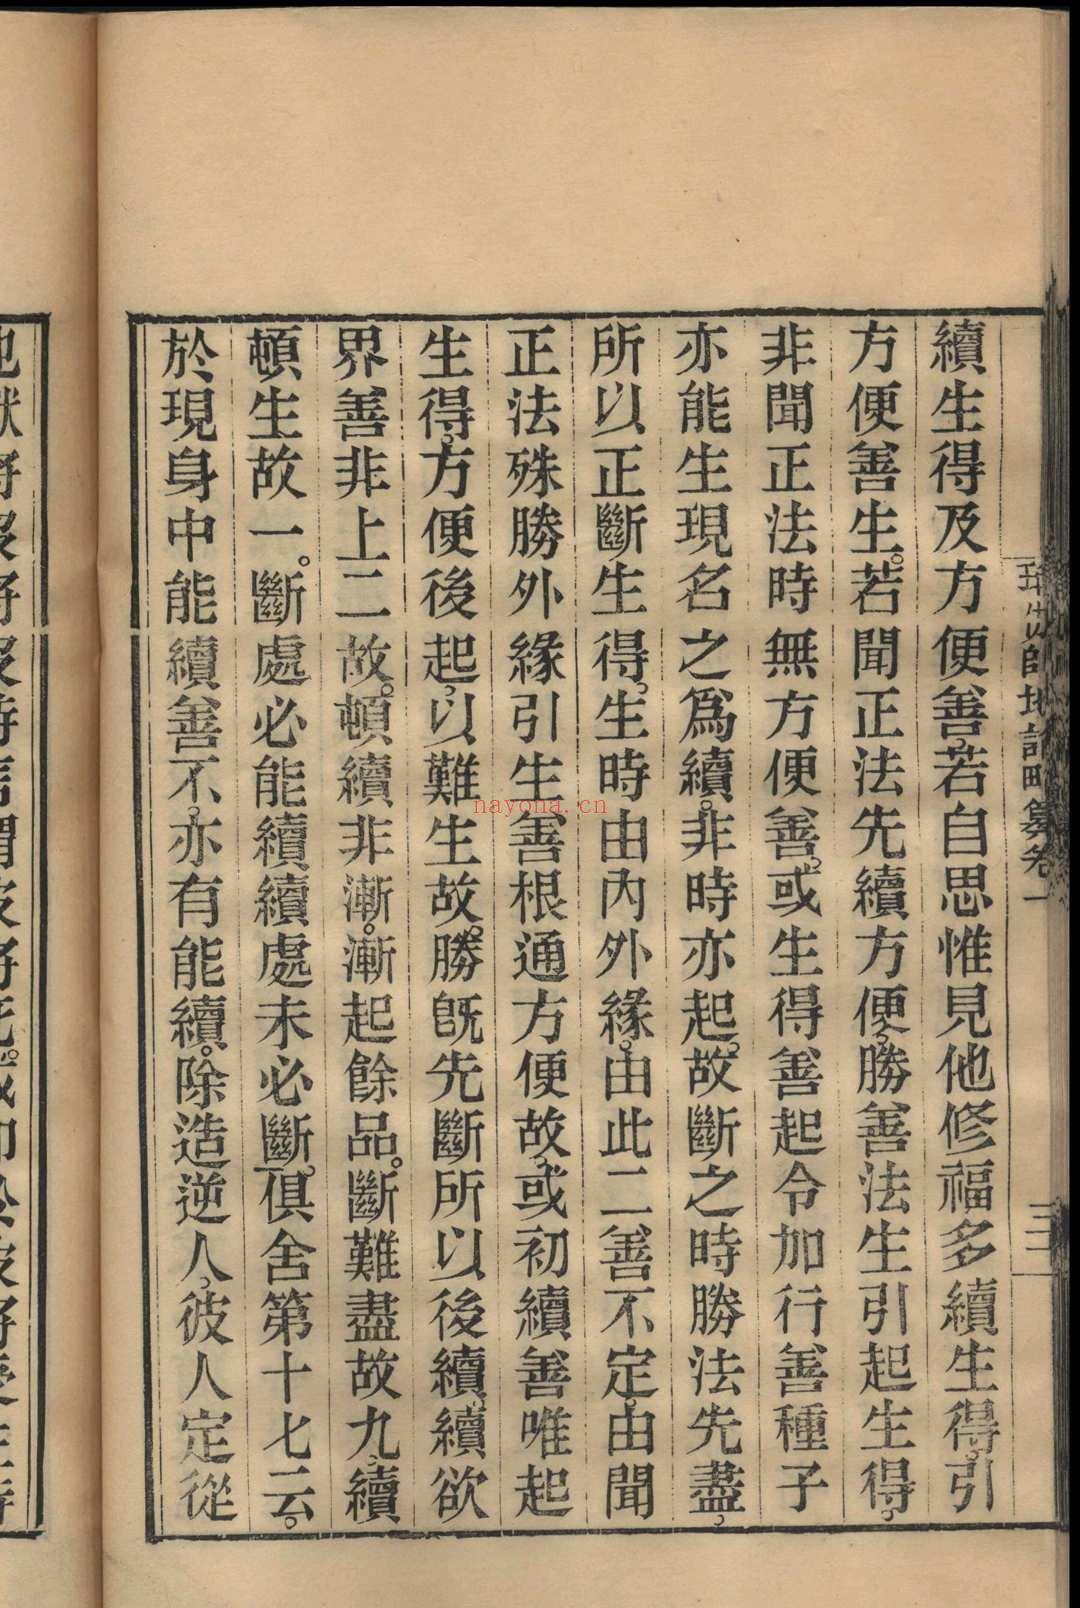 續生得及方便善。若自思惟見他修福多續生得。引
方便善生。若聞正法先續方便。勝善法生引起生得。
非聞正法時無方便善。或生得善起令加行善種子
亦能生現名之爲續。非時亦起。故斷之時勝法先盡。
所以正斷生得。生時由內外緣。由此二善不定。由聞
正法殊勝外緣引生善根通方便故。或初續善唯起
生得。方便後起。以難生故。勝旣先斷所以後續。續欲
界善非上二故。頓續非漸。漸起餘品。斷難盡故九。續
頓生故一。斷處必能續續處未必斷。俱舍第十七云。
於現身中能續善不。亦有能續。除造逆人。彼人定從
nayona.cn